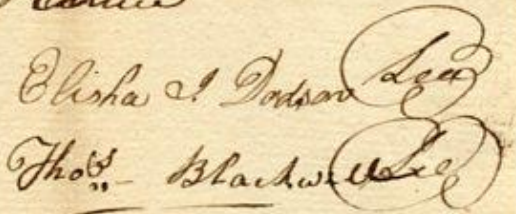 Elisha I Dodson Seal
Thos Blackwell Seal